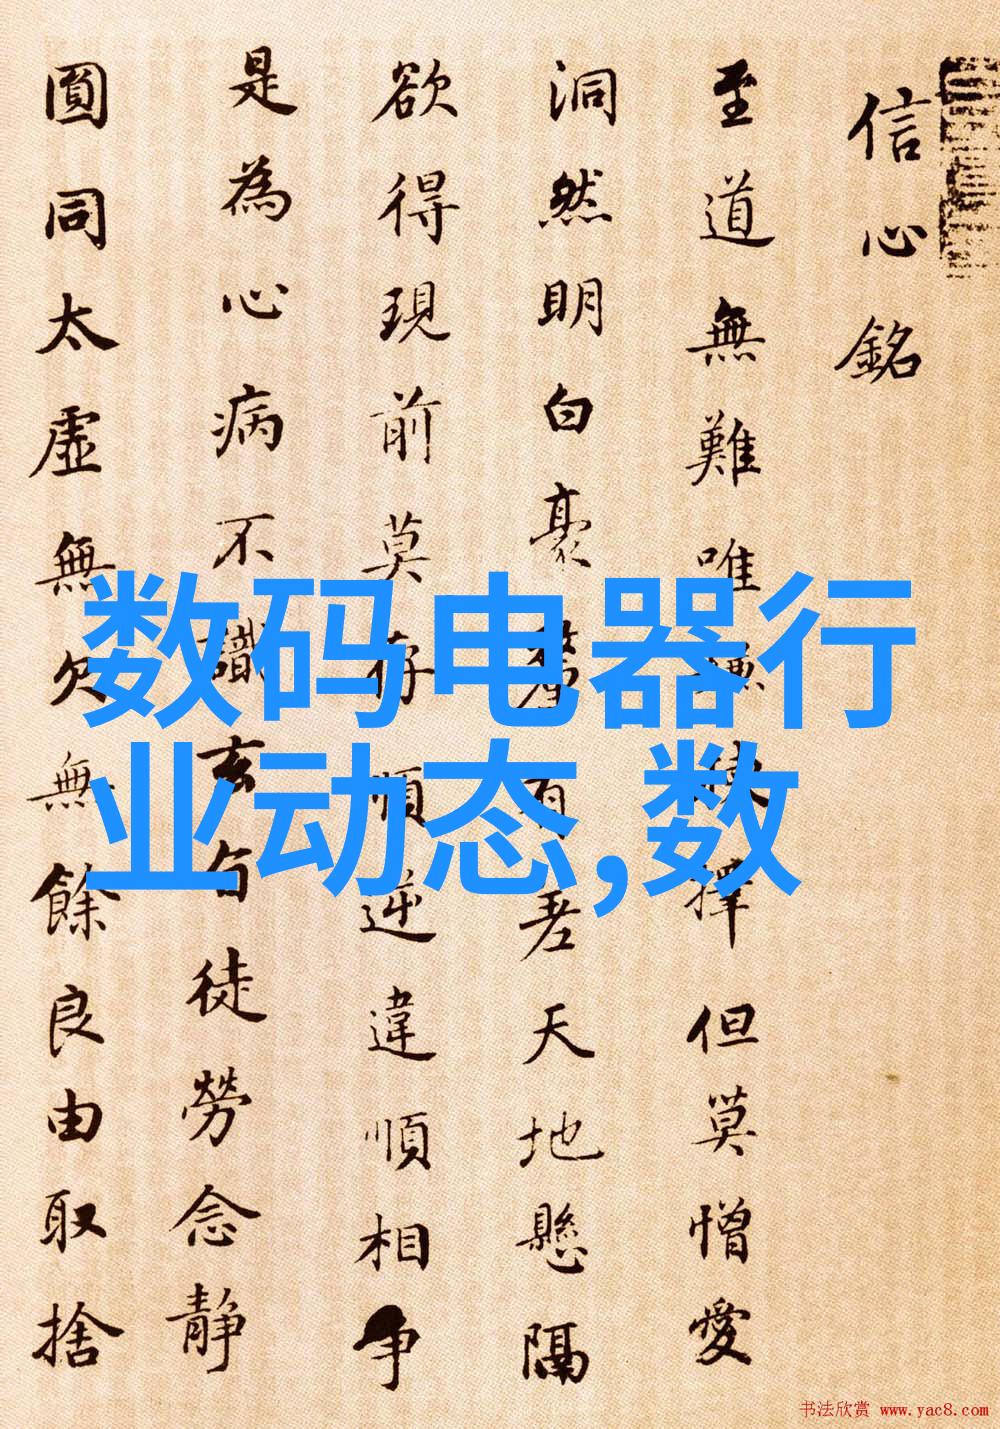 信心銘
至道無難唯嫌揀擇但莫憎愛
洞然明白豪釐有差天地懸隔
欲得現前莫存順逆違順相争
是為心病不識玄旨徒勞念静
圓同太虛無欠無餘良由取捨
数码电器行
业动态,数
书法欣赏 www.yac8.com